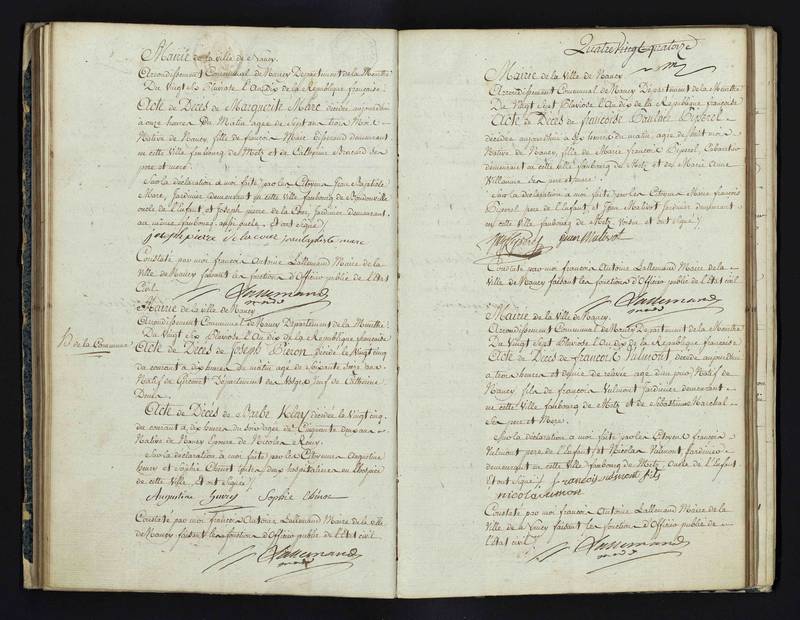 Mairie de la ville de Nancy
Arrondissement Communal de Nancy Département de la Meurthe
Du Vingt Six Pluviose L'An Dix de la République française
Acte de Décès de Marguerite Marc décédée aujourd'hui
à onze heures Du Matin agée de
Native de Nancy, fille de françois Marc demeurant
en cette Ville faubourg de Metz et de Catherine
pere et mere
Sur la déclaration à moi faite par les Citoyens Jean Baptiste
Marc, Jardinier demeurant en cette ville faubourg de
oncle de l'Enfant et Joseph pierre de la Cour, Jardinier demeurant
au même faubourg Et ont signé
joseph pierre de la cour jean baptiste marc
Constaté par moi françois Antoine Lallemand Maire de la
Ville de Nancy faisant les fonctions d'Officier public de l'Etat
Civil
Lallemand
Mairie de la ville de Nancy
Arrondissement Communal de Nancy Département de la Meurthe
Du Vingt Six Pluviose L'An Dix de la République française
B de la Commune
Acte de Décès de Joseph Pieron décédé le Vingt cinq
du courant à dix heures du matin agé de Soixante
Natif de Département des Vosges Veuf de Catherine
Acte de Décès de Barbe Klay décédée le Vingt cinq
du courant à dix heures du soir agée de Cinquante deux ans
Native de Nancy Epouse de Nicolas Remy
Sur la déclaration à moi faite par les Citoyennes Augustine
henry et Sophie Chenot toutes deux hospitalieres en l'hospice
de cette Ville, Et ont Signé
Augustine henry Sophie Chenot
Constaté par moi françois Antoine Lallemand Maire de la ville
de Nancy faisant les fonctions d'Officier public de l'Etat civil
Lallemand
Quatre Vingt quatorze
Mairie de la Ville de Nancy
Arrondissement Communal de Nancy Département de la Meurthe
Du Vingt Sept Pluviose L'An dix de la République française
Acte de Décès de françoise Pauline Pigerel
décédée aujourd'hui à heures du matin agée de huit mois
Native de Nancy, fille de Marie françois Pigerel Cabaretier
demeurant en cette ville faubourg de Metz et de Marie Anne
Villaume Ses pere et mere
Sur la Déclaration à moi faite par les Citoyens Marie françois
Pigerel pere de l'enfant et Jean Jardinier demeurant
en cette Ville faubourg de Metz, voisin et ont Signé
jean
Constaté par moi françois Antoine Lallemand Maire de la
Ville de Nancy faisant les fonctions d'Officier public de l'Etat civil
Lallemand
Mairie de la ville de Nancy
Arrondissement Communal de Nancy Département de la Meurthe
Du Vingt Sept Pluviose L'An dix de la République française
Acte de Décès de françois Vulmont décédé aujourd'hui
à trois heures et demie de relevée agé d'un jour Natif de
Nancy fils de françois Vulmont Jardinier demeurant
en cette Ville faubourg de Metz et de Sébastienne Marchal
Ses pere et Mere
Sur la Déclaration à moi faite par les Citoyens françois
Vulmont pere de l'Enfant et Nicolas Vulmont, Jardinier
demeurant en cette ville faubourg de Metz, oncle de l'Enfant
Et ont Signé françois vulmont fils
nicolas vulmont
Constaté par moi françois Antoine Lallemand Maire de la
Ville de Nancy faisant les fonctions d'Officier public de
l'Etat civil
Lallemand